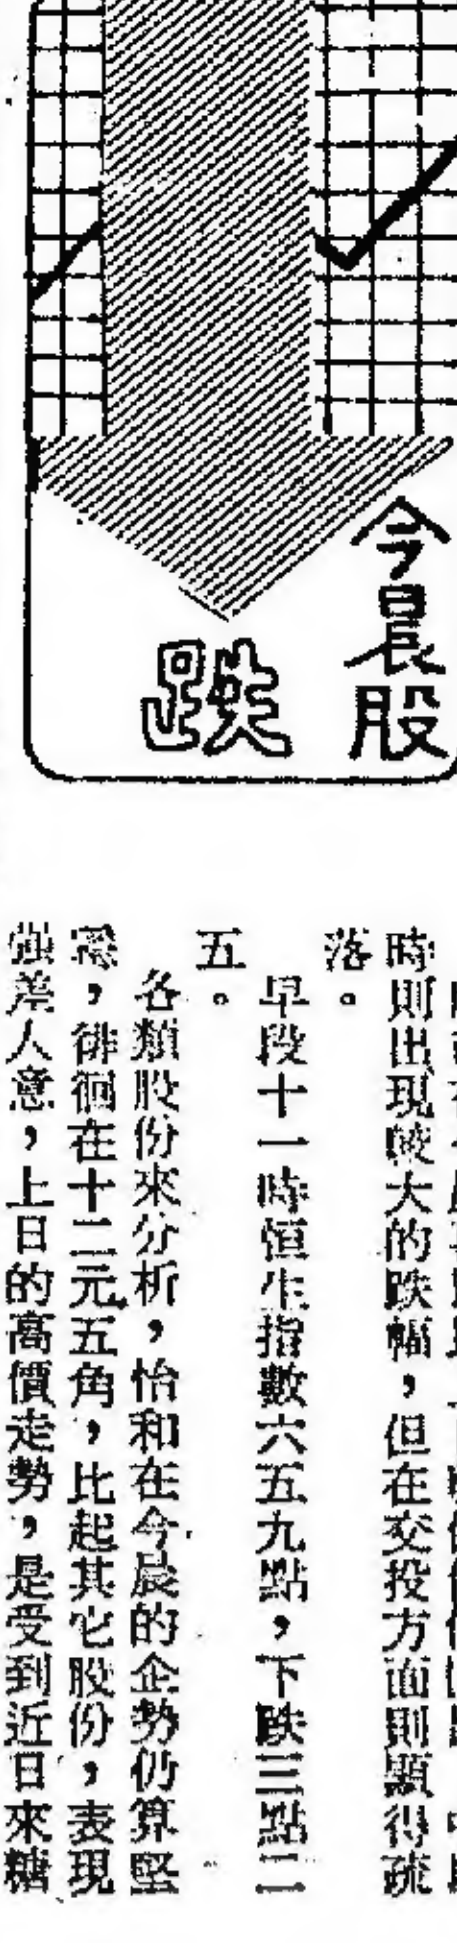 今晨股
跌
時則出現較大的跌幅，但在交投方面則顯得疏
落。
早段十一時恒生指數六五九點，下跌三點二
五。
各類股份來分析，怡和在今晨的企勢仍算堅
穩，徘徊在十二元五角，比起其它股份，表現
強差人意，上日的高價走勢，是受到近日來糖